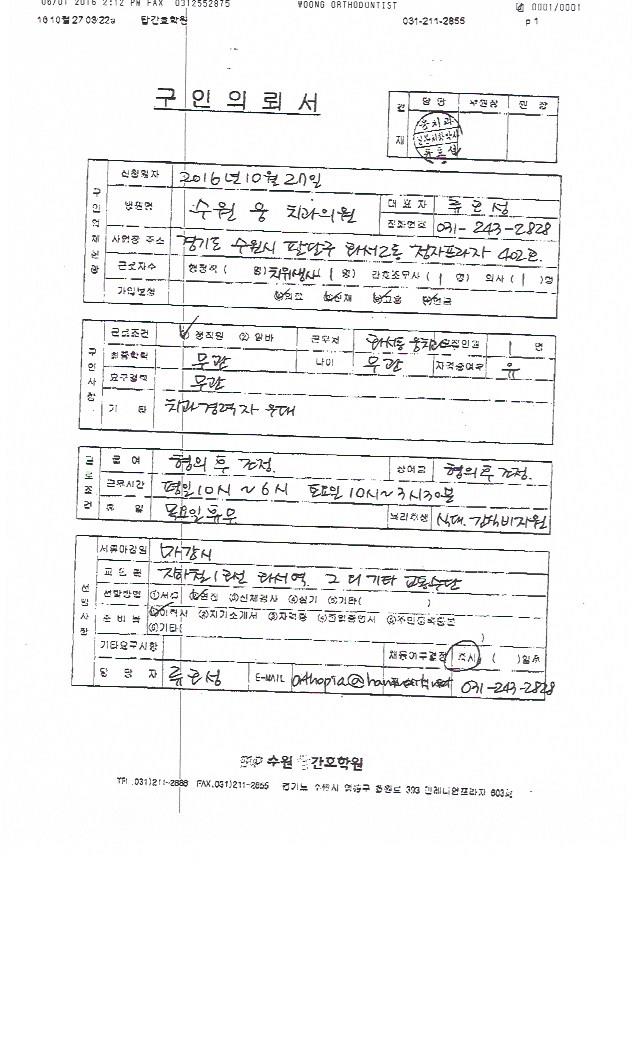 06/01 2016 2:12 PM FAX 0312552875 WOONG ORTHODONTIST 0001/0001
16 10월27 03:22a 탑간호학원 031-211-2855 p 1
구인의뢰서
결재 담당 부원장 원장
웅치과
신청일자 2016년 10월 27일
병원명 수원 웅 치과의원 대표자
전화번호 031-243-2828
사업장 주소 경기도 수원시 팔달구 화서2동 402호
근로자수 ( 명) 치위생사 1 명) 간호조무사 ( 1 명) 의사 ( 1 )명
가입보험 의료 산재 고용 연금
구인사항
근로조건 ① 정직원 ② 알바 근무처 화서동 웅치과 모집인원 1 명
최종학력 무관 나이 무관 자격증여부 유
요구경력 무관
기타 치과경력자 우대
근로조건
급여 협의 후 결정. 상여금 협의 후 결정.
근무시간 평일 10시 ~ 6시 토요일 10시~3시30분
휴일 목요일 휴무 복리후생 식대.
선발사항
서류마감일 마감시
교통편 지하철 1호선 화서역. 그 외 기타 교통수단
선발방법 ①서류 ②면접 ③신체검사 ④실기 ⑤기타( )
준비물 ①이력서 ②자기소개서 ③자격증 ④졸업증명서 ⑤주민등록등본
⑥기타( )
기타요구사항 채용여부결정 즉시, ( )일후
담당자 E-MAIL 031-243-2828
수원 간호학원
TEL.031)211-2888 FAX.031)211-2855 경기도 수원시 영통구